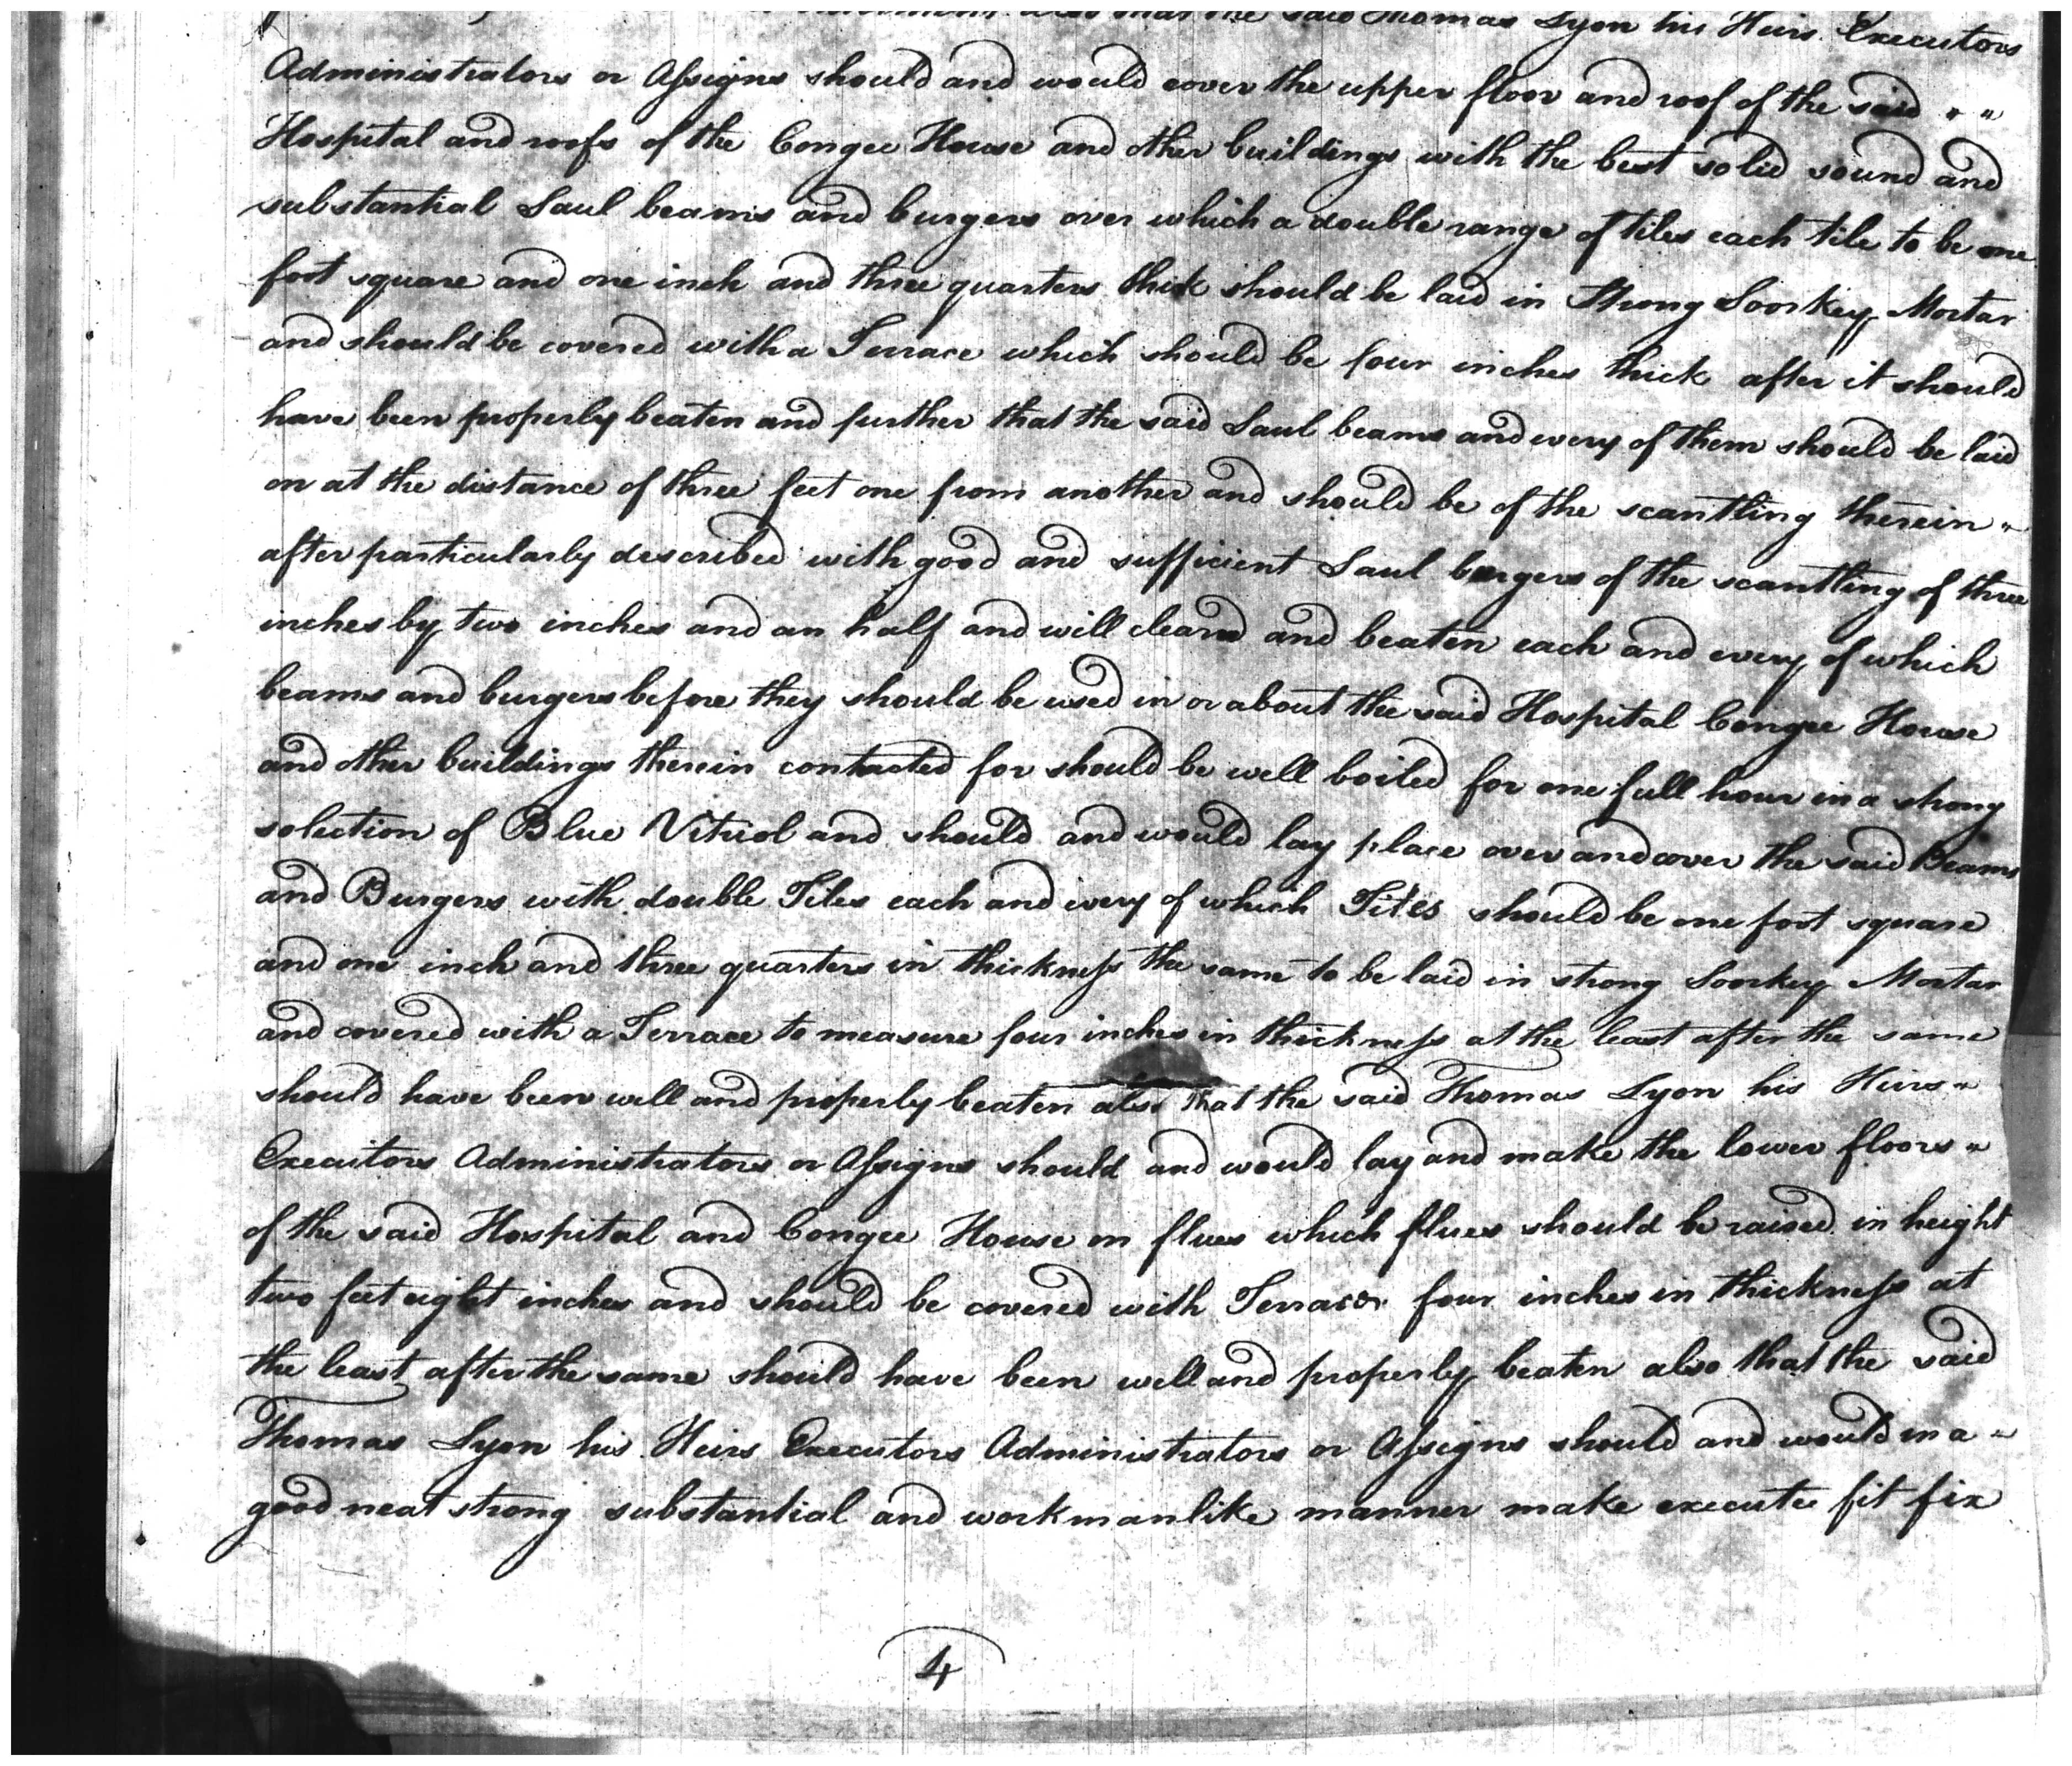 also that the said Thomas Lyon his Heirs Executors
Administrators or Assigns should and would cover the upper floor and roof of the said " "
Hospital and roofs of the Congee House and other buildings with the best solid sound and
substantial Saul beams and burgers over which a double range of tiles each tile to be one
foot square and one inch and three quarters thick should be laid in strong Soorkey Mortar
and should be covered with a Terrace which should be four inches thick after it should
have been properly beaten and further that the said Saul beams and every of them should be laid
on at the distance of three feet one from another and should be of the scantling therein "
after particularly described with good and sufficient Saul burgers of the scantling of three
inches by two inches and an half and will cleand and beaten each and every of which
beams and burgers before they should be used in or about the said Hospital Congee House
and other buildings therein contracted for should be well boiled for one full hour in a strong
solection of Blue Vitriol and should and would lay place over and cover the said Beams
and Burgers with double Tiles each and every of which Tiles should be one foot square
and one inch and three quarters in thickness the same to be laid in strong Soorkey Mortar
and covered with a Terrace to measure four inches in thickness at the least after the same
should have been well and properly beaten also that the said Thomas Lyon his Heirs "
Executors Administrators or Assigns should and would lay and make the lower floors "
of the said Hospital and Congee House on flues which flues should be raised in height
two feet eight inches and should be covered with Terrace four inches in thickness at
the least after the same should have been well and properly beaten also that the said
Thomas Lyon his Heirs Executors Administrators or Assigns should and would in a "
good neat strong substantial and workmanlike manner make execute fit fix
4